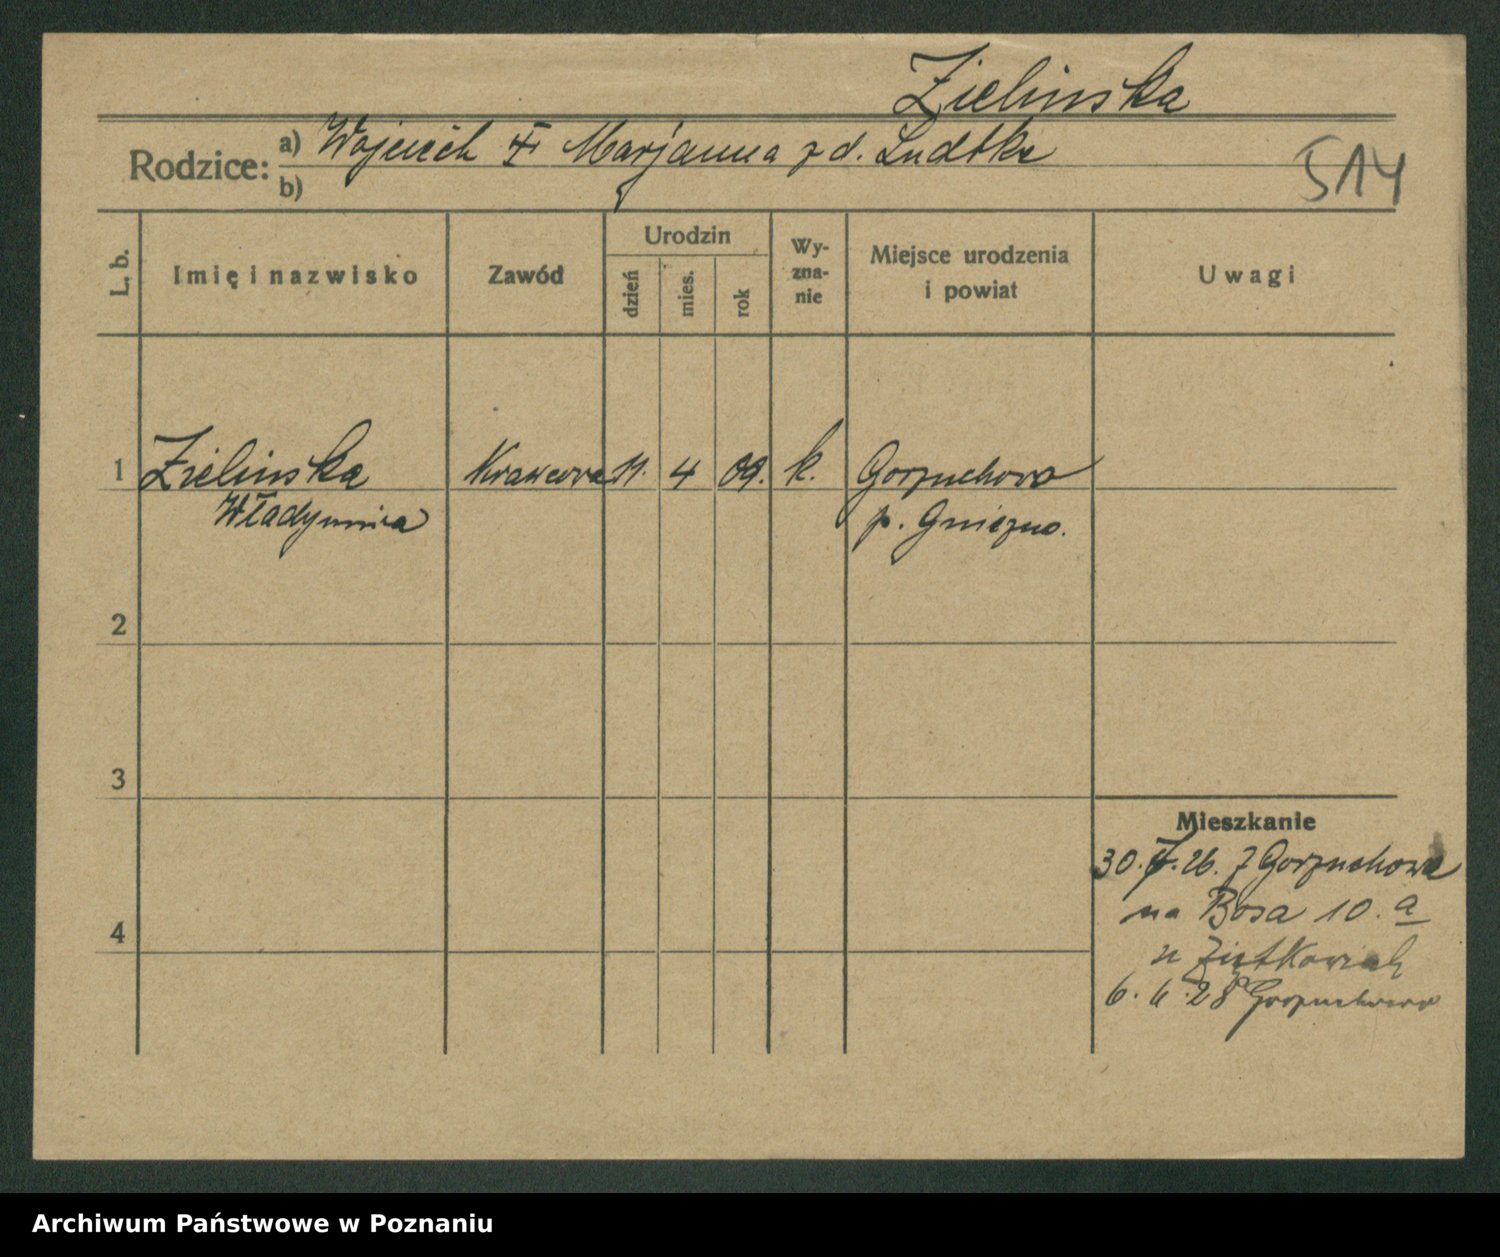 Zielinska
Rodzice: a) Wojciech Marjanna z d. Ludtke
b)
514
L. b.
Imię i nazwisko
Zawód
Urodzin
dzień
mies.
rok
Wy-
zna-
nie
Miejsce urodzenia
i powiat
Uwagi
1 Zielinska Krawcowa 11. 4 09. k. Gorzuchowo
Władysława p. Gniezno.
2
3
4
Mieszkanie
30. 26. z Gorzuchowa
na Bosa 10. a
u Ziętkowiak
6. 6. 28 Gorzuchowo
Archiwum Państwowe w Poznaniu